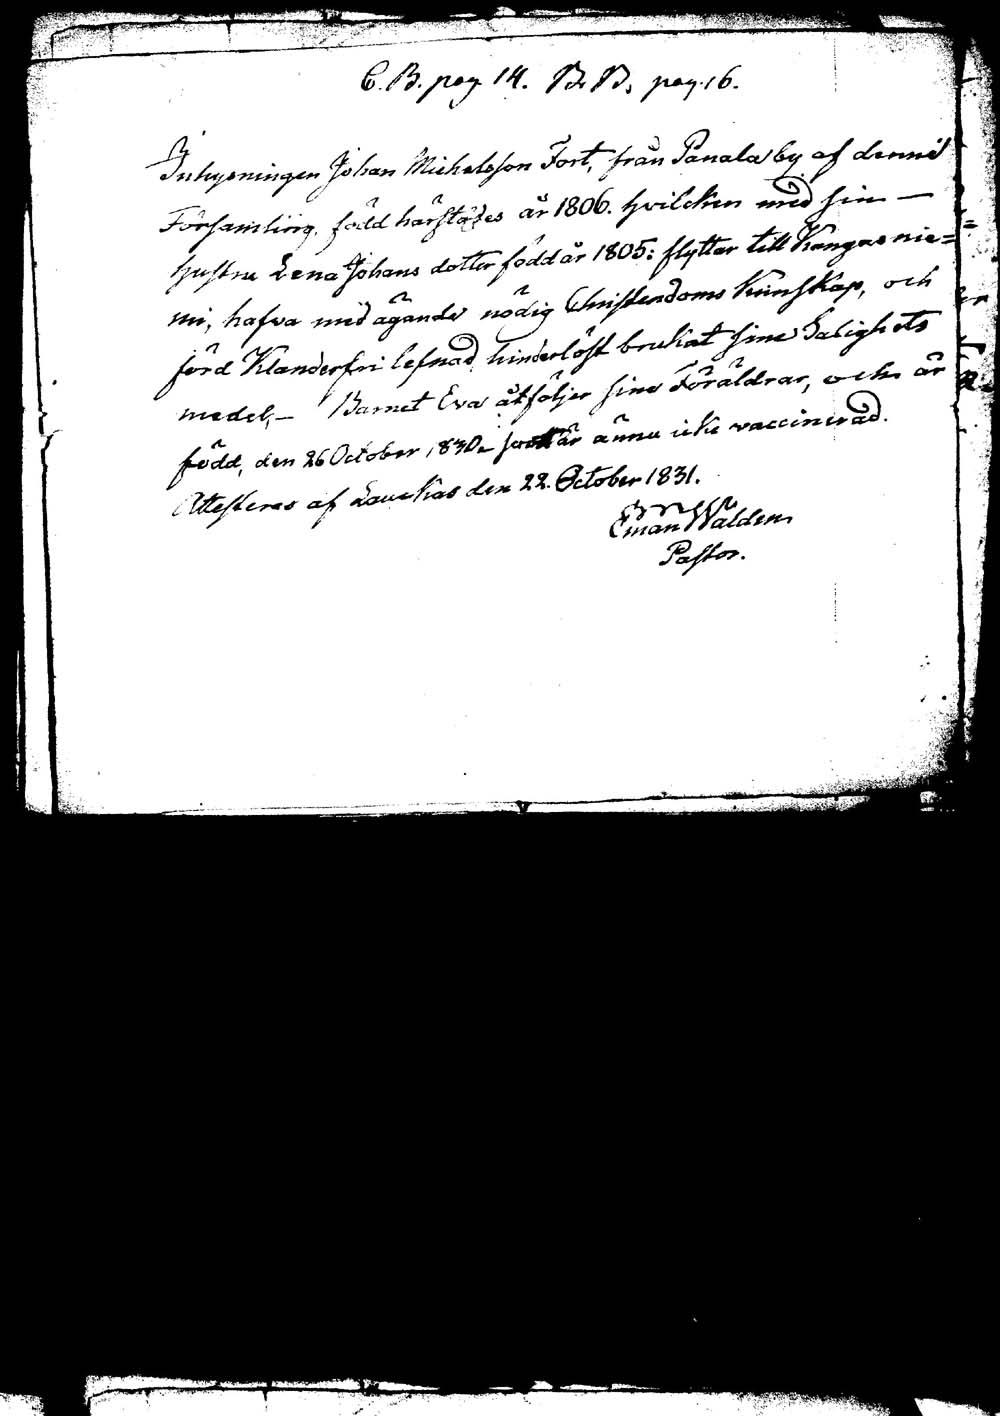 C. B. pag 14. B. B. pag. 16.
Inhyseningen Johan Michelsson Fort, från Panala by af denne
Församling, född härstädes år 1806. hvilcken med sin —
hustru Lena Johans dotter född år 1805: flyttar till Kangasnie=
mi, hafva med ägande nödig Christendoms kunskap, och
förd Klanderfri lefnad, hinderlöst brukat sine Salighets
medel, — Barnet Eva åtföljer sine Föräldrar, och är
född, den 26 October 1830. är ännu icke vaccinerad.
Attesteras af Laukas den 22. October 1831.
Eman Walden
Pastor.